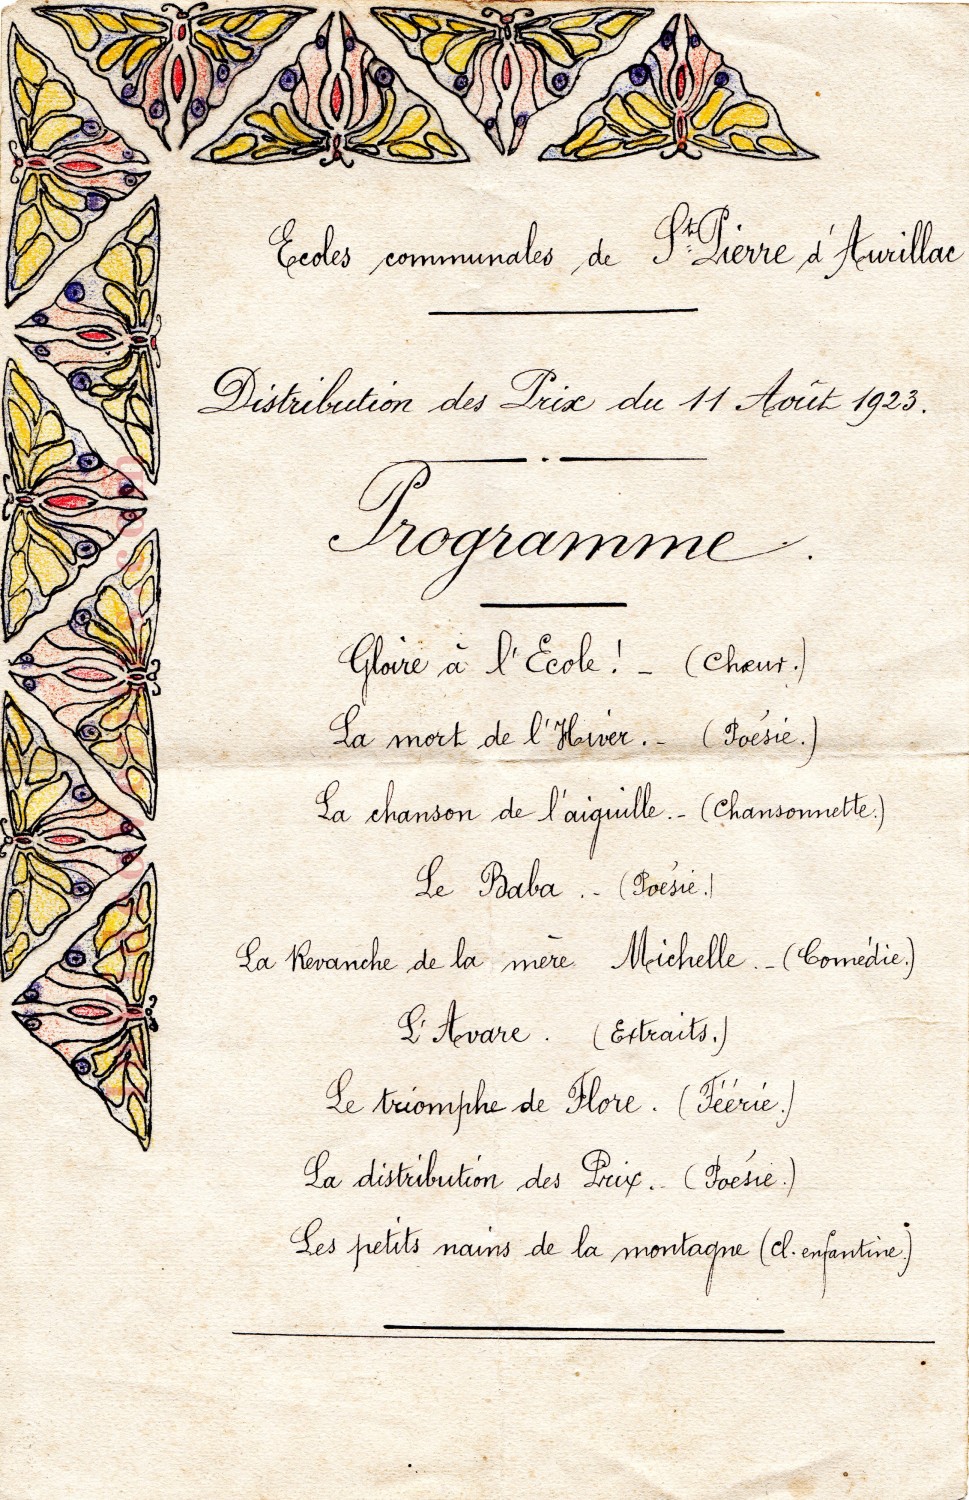 Ecoles communales de St Pierre d'Aurillac
Distribution des Prix du 11 Août 1923.
Programme.
Gloire à l'Ecole! - (Chœur.)
La mort de l'Hiver. - (Poésie.)
La chanson de l'aiguille. - (Chansonnette.)
Le Baba. - (Poésie.)
La Revanche de la mère Michelle. - (Comédie.)
L'Avare. (Extraits.)
Le triomphe de Flore. (Féérie.)
La distribution des Prix. - (Poésie.)
Les petits nains de la montagne (cl. enfantine.)